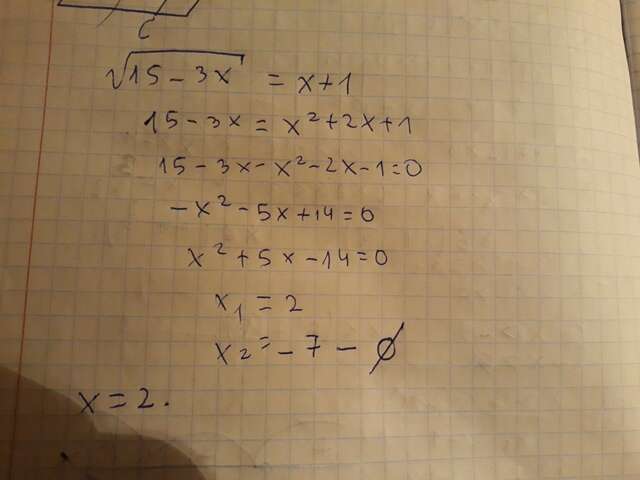 c
√15 - 3x = x+1
15 - 3x = x²+2x+1
15 - 3x - x² - 2x - 1 = 0
-x² - 5x + 14 = 0
x² + 5x - 14 = 0
x₁ = 2
x₂ = -7 - ∅
x = 2.